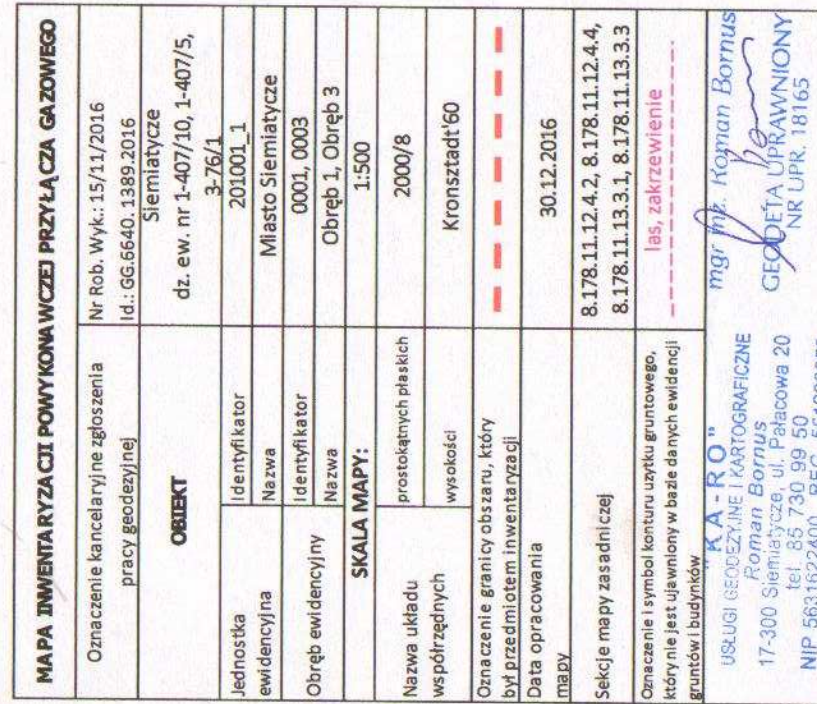 MAPA INWENTARYZACJI POWYKONAWCZEJ PRZYŁĄCZA GAZOWEGO
Oznaczenie kancelaryjne zgłoszenia
pracy geodezyjnej
Nr Rob. Wyk.: 15/11/2016
Id.: GG.6640. 1389.2016
OBIEKT
Siemiatycze
dz. ew. nr 1-407/10, 1-407/5,
3-76/1
Jednostka
ewidencyjna
Identyfikator
201001_1
Nazwa
Miasto Siemiatycze
Obręb ewidencyjny
Identyfikator
0001, 0003
Nazwa
Obręb 1, Obręb 3
SKALA MAPY:
1:500
Nazwa układu
współrzędnych
prostokątnych płaskich
2000/8
wysokości
Kronsztadt'60
Oznaczenie granicy obszaru, który
był przedmiotem inwentaryzacji
Data opracowania
mapy
30.12.2016
Sekcje mapy zasadniczej
8.178.11.12.4.2, 8.178.11.12.4.4,
8.178.11.13.3.1, 8.178.11.13.3.3
Oznaczenie i symbol konturu uzytku gruntowego,
który nie jest ujawniony w bazie danych ewidencji
gruntów i budynków
las, zakrzewienie
"KA-RO"
USŁUGI GEODEZYJNE I KARTOGRAFICZNE
Roman Bornus
17-300 Siemiatycze, ul. Pałacowa 20
tel. 85 730 99 50
NIP 5631622400, REG.
mgr inż. Roman Bornus
GEODETA UPRAWNIONY
NR UPR. 18165